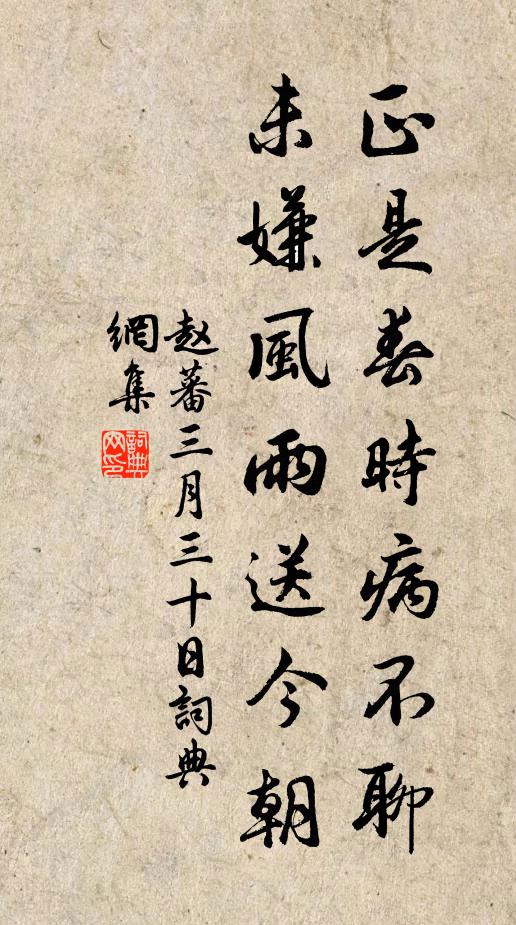 正是春時病不聊
未嫌風雨送今朝
赵蕃三月三十日詞典
網集
詞典
网印